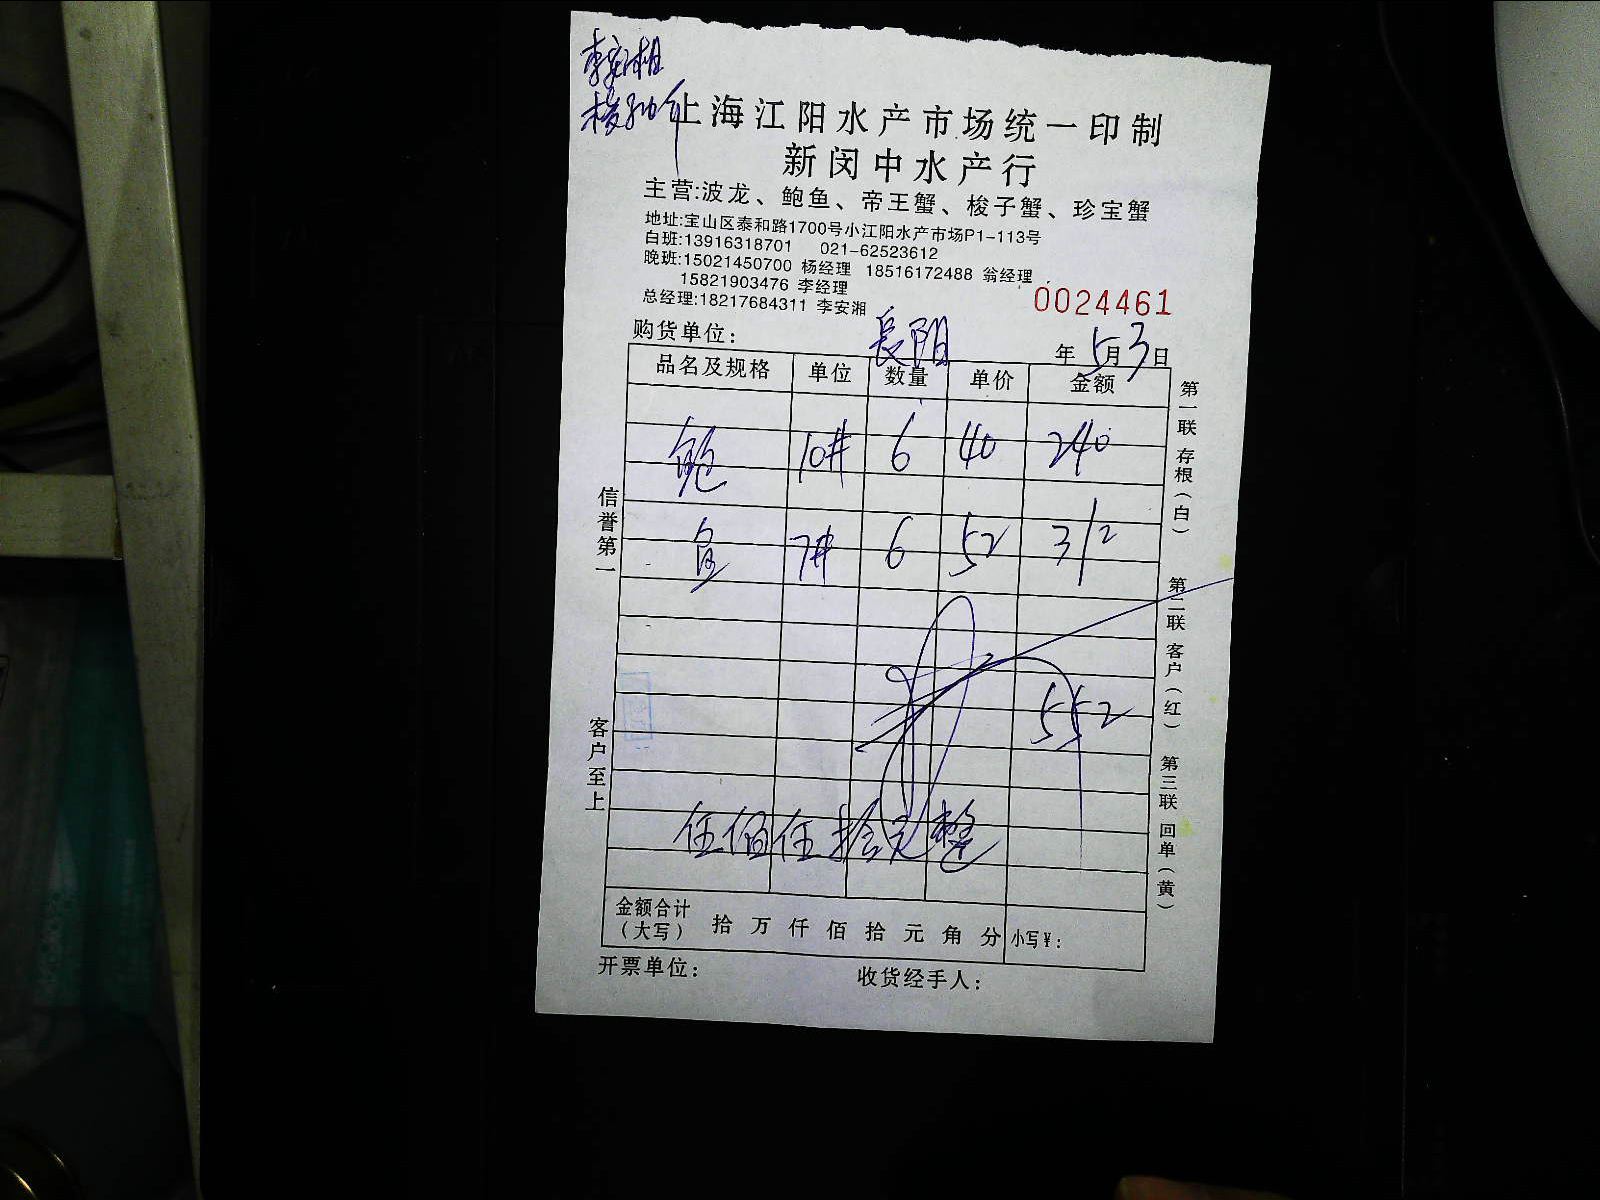 李安湘
上海江阳水产市场统一印制
新闵中水产行
主营:波龙、鲍鱼、帝王蟹、梭子蟹、珍宝蟹
地址:宝山区泰和路1700号小江阳水产市场P1-113号
白班:13916318701 021-62523612
晚班:15021450700 杨经理 18516172488 翁经理
15821903476 李经理
总经理:18217684311 李安湘
0024461
购货单位: 長阳 年 5月3日
品名及规格 单位 数量 单价 金额
鲍 10# 6 40 240
鱼 7# 6 52 312
552
伍佰伍拾元整
金额合计
(大写) 拾 万 仟 佰 拾 元 角 分 小写¥:
开票单位: 收货经手人:
信誉第一
客户至上
第一联 存根(白)
第二联 客户(红)
第三联 回单(黄)